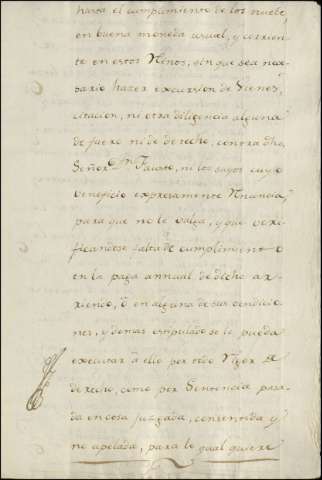 hasta el cumplimiento de los nueve,
en buena moneda usual, y corrien-
te en estos Reinos, sin que sea nece-
sario hazer excursion de Bienes,
citacion, ni otra diligencia alguna
de fuero ni de derecho, contra dho,
Señor Dn Fausto, ni los suyos cuyo
beneficio expresamente Renuncia,
para que no le valga, y que veri-
ficandose falta de cumplimiento
en la paga annual de dicho ar-
riendo, ô en alguna de sus condicio-
nes, y demas estipulado se le pueda
executar â ello por todo Rigor de
derecho, como por Sentencia pasa-
da en cosa juzgada, consentida y
no apelada, para lo qual quiere